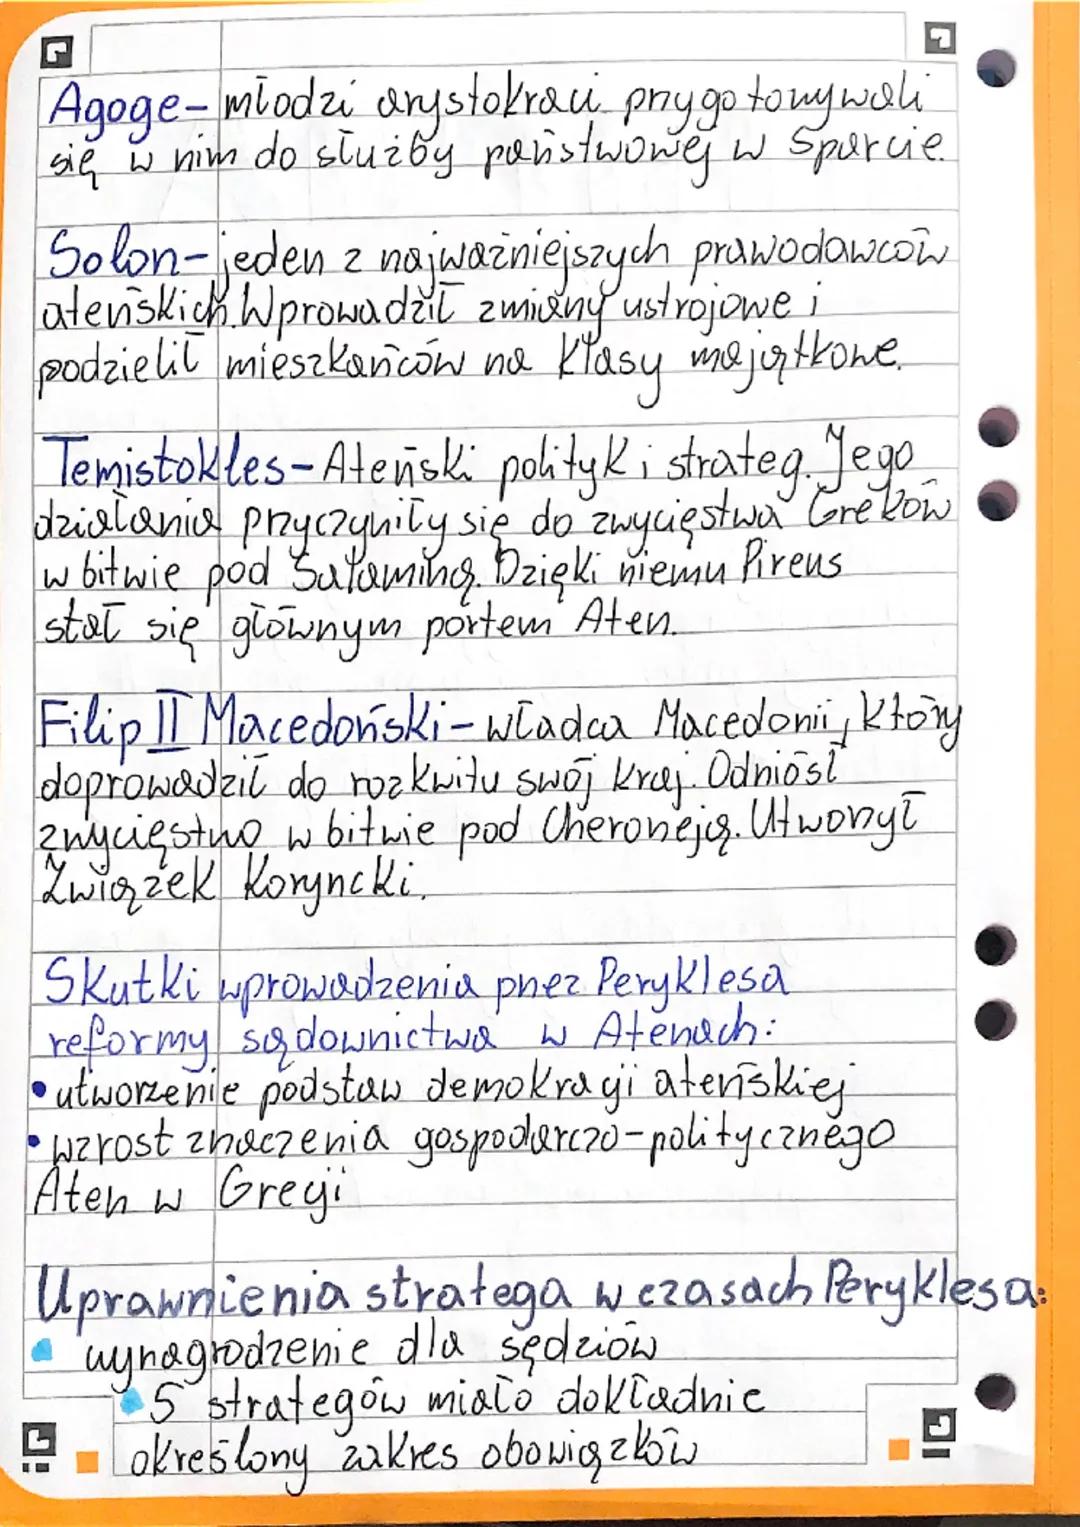 Agoge- młodzi arystokraci przygotowywali
się w nim do służby państwowej w Sparcie.
Solon- jeden z najważniejszych prawodawców
ateńskich. Wprowadził zmiany ustrojowe i
podzielił mieszkańców na klasy majątkowe.
Temistokles- Ateński polityk i strateg. Jego
działania przyczyniły się do zwycięstwa Greków
w bitwie pod Salaminą. Dzięki niemu Pireus
stał się głównym portem Aten.
Filip II Macedoński- władca Macedonii, który
doprowadził do rozkwitu swój kraj. Odniósł
zwycięstwo w bitwie pod Cheroneją. Utworzył
Związek Koryncki.
Skutki wprowadzenia przez Peryklesa
reformy sądownictwa w Atenach:
• utworzenie podstaw demokracji ateńskiej
• wzrost znaczenia gospodarczo-politycznego
Aten w Grecji
Uprawnienia stratega w czasach Peryklesa:
• wynagrodzenie dla sędziów
• 5 strategów miało dokładnie
określony zakres obowiązków